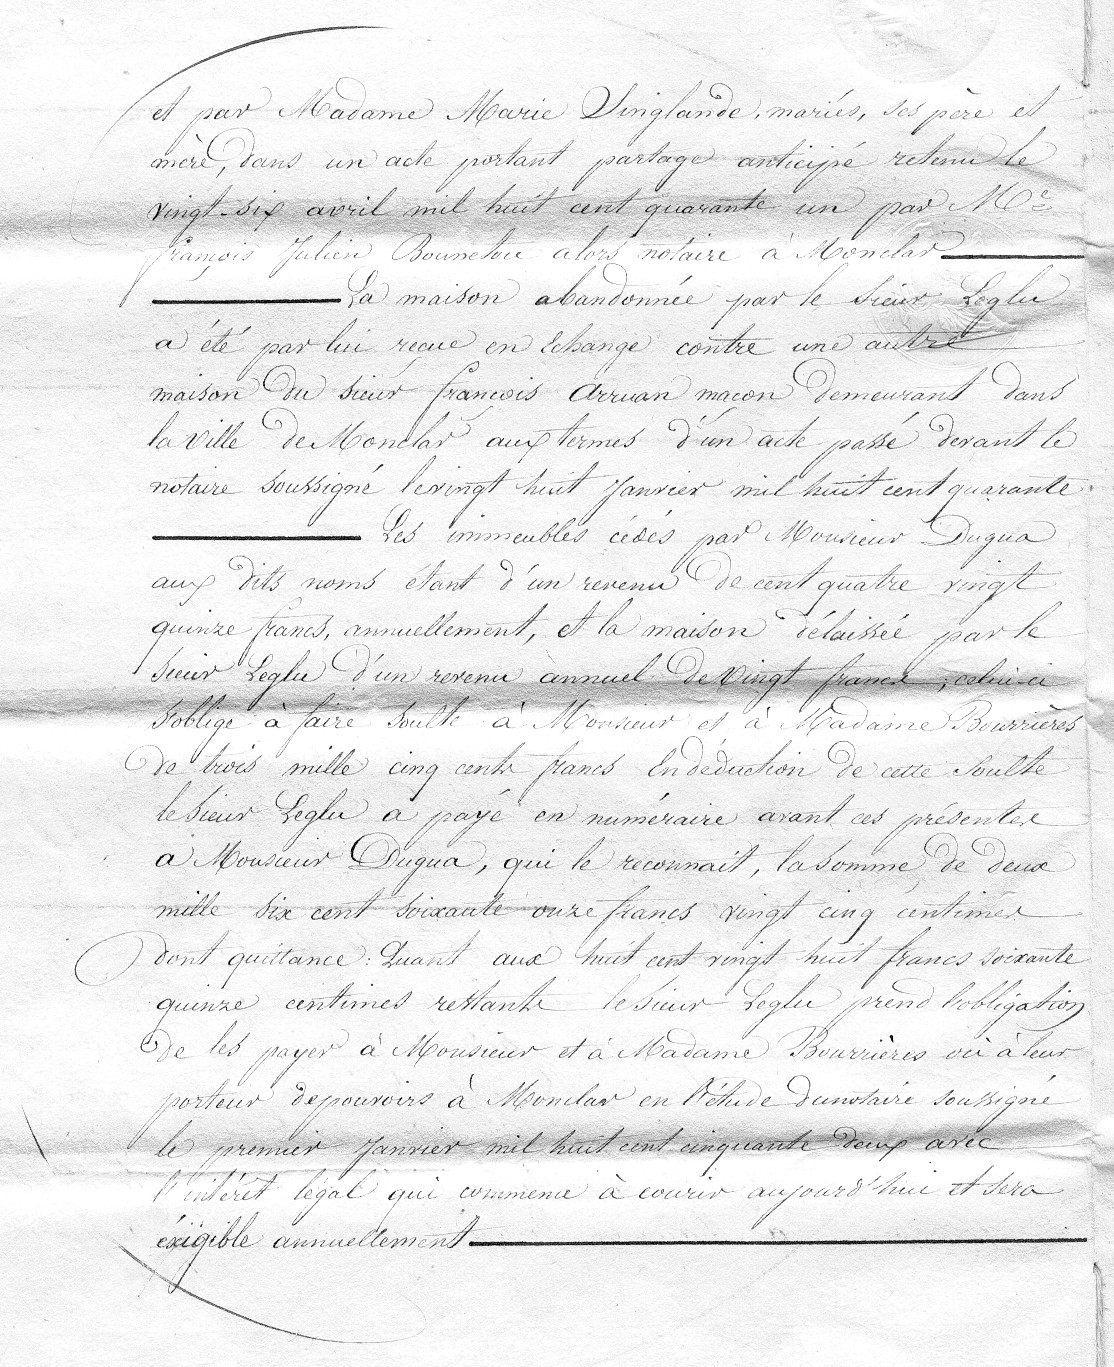 et par Madame Marie Singlande, mariés, ses père et
mère, dans un acte portant partage anticipé retenu le
vingt-six avril mil huit cent quarante un par Me
françois Julien alors notaire à Monclar
La maison abandonnée par le sieur Leglu
a été par lui reçue en Echange contre une autre
maison du sieur françois Arruan maçon demeurant dans
la ville de Monclar aux termes d'un acte passé devant le
notaire soussigné le vingt huit Janvier mil huit cent quarante
Les immeubles cédés par Monsieur Dugua
aux dits noms étant d'un revenu de cent quatre vingt
quinze francs, annuellement, et la maison délaissée par le
sieur Leglu d'un revenu annuel de vingt francs, celui-ci
s'oblige à faire soulte à Monsieur et à Madame Bourrières
de trois mille cinq cents francs En déduction de cette soulte
le sieur Leglu a payé en numéraire avant ces présentes
a Monsieur Dugua, qui le reconnait, la somme de deux
mille six cent soixante onze francs vingt cinq centimes
dont quittance : Quant aux huit cent vingt huit francs soixante
quinze centimes restants le sieur Leglu prend l'obligation
de les payer à Monsieur et à Madame Bourrières où à leur
porteur de pouvoirs à Monclar en l'étude du notaire soussigné
le premier Janvier mil huit cent cinquante deux avec
l'intérêt légal qui commence à courir aujourd'hui et sera
éxigible annuellement